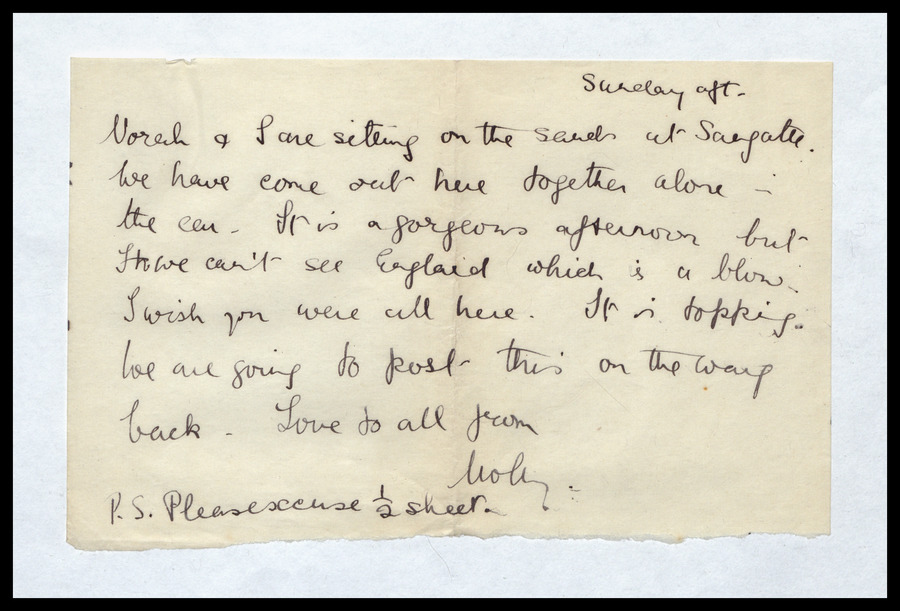 Sunday aft.
Norah & I are sitting on the sands at Sangatte.
We have come out here together alone in
the car. It is a gorgeous afternoon but
we can't see England which is a blow.
I wish you were all here. It is topping.
We are going to post this on the way
back. Love to all from
Molly.
P.S. Please excuse ½ sheet.